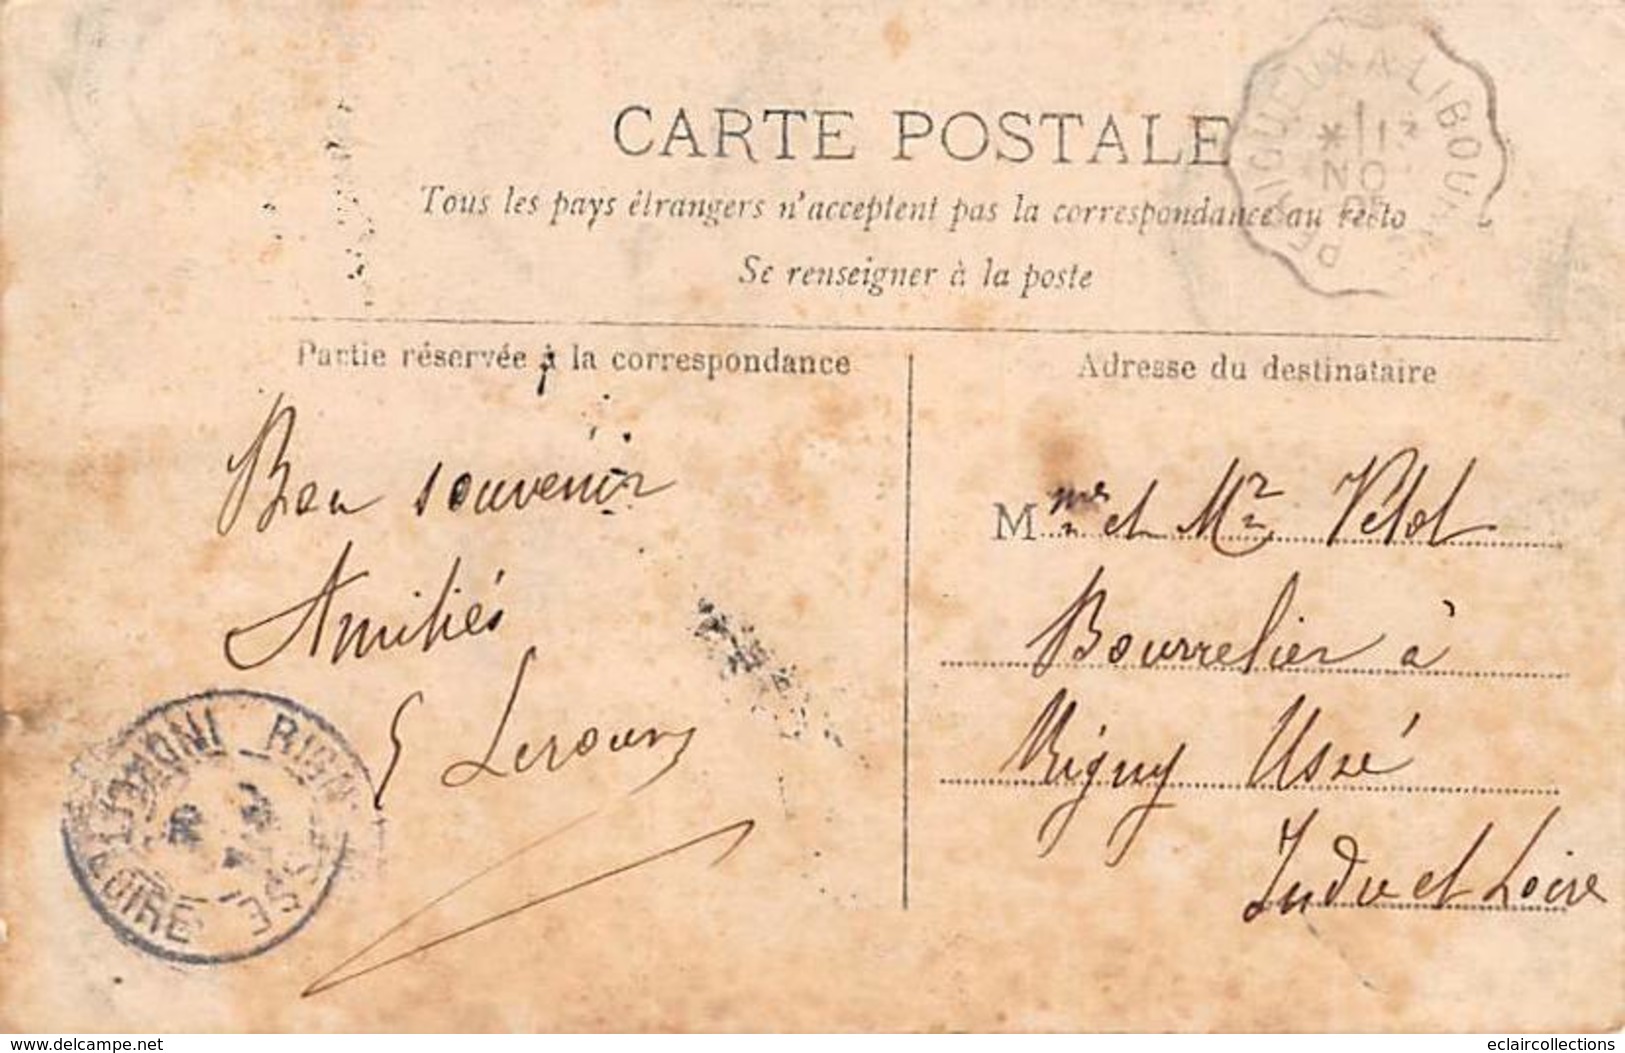 CARTE POSTALE
Tous les pays étrangers n'acceptent pas la correspondance au recto
Se renseigner à la poste
PERIGUEUX A LIBOURNE
NO
Partie réservée à la correspondance
Adresse du destinataire
Bon souvenir
Amitiés
Mme et Mr
Bourrelier à
Rigny Ussé
Indre et Loire
RIGNY-USSÉ
INDRE-ET-LOIRE
www.delcampe.net
eclaircollections